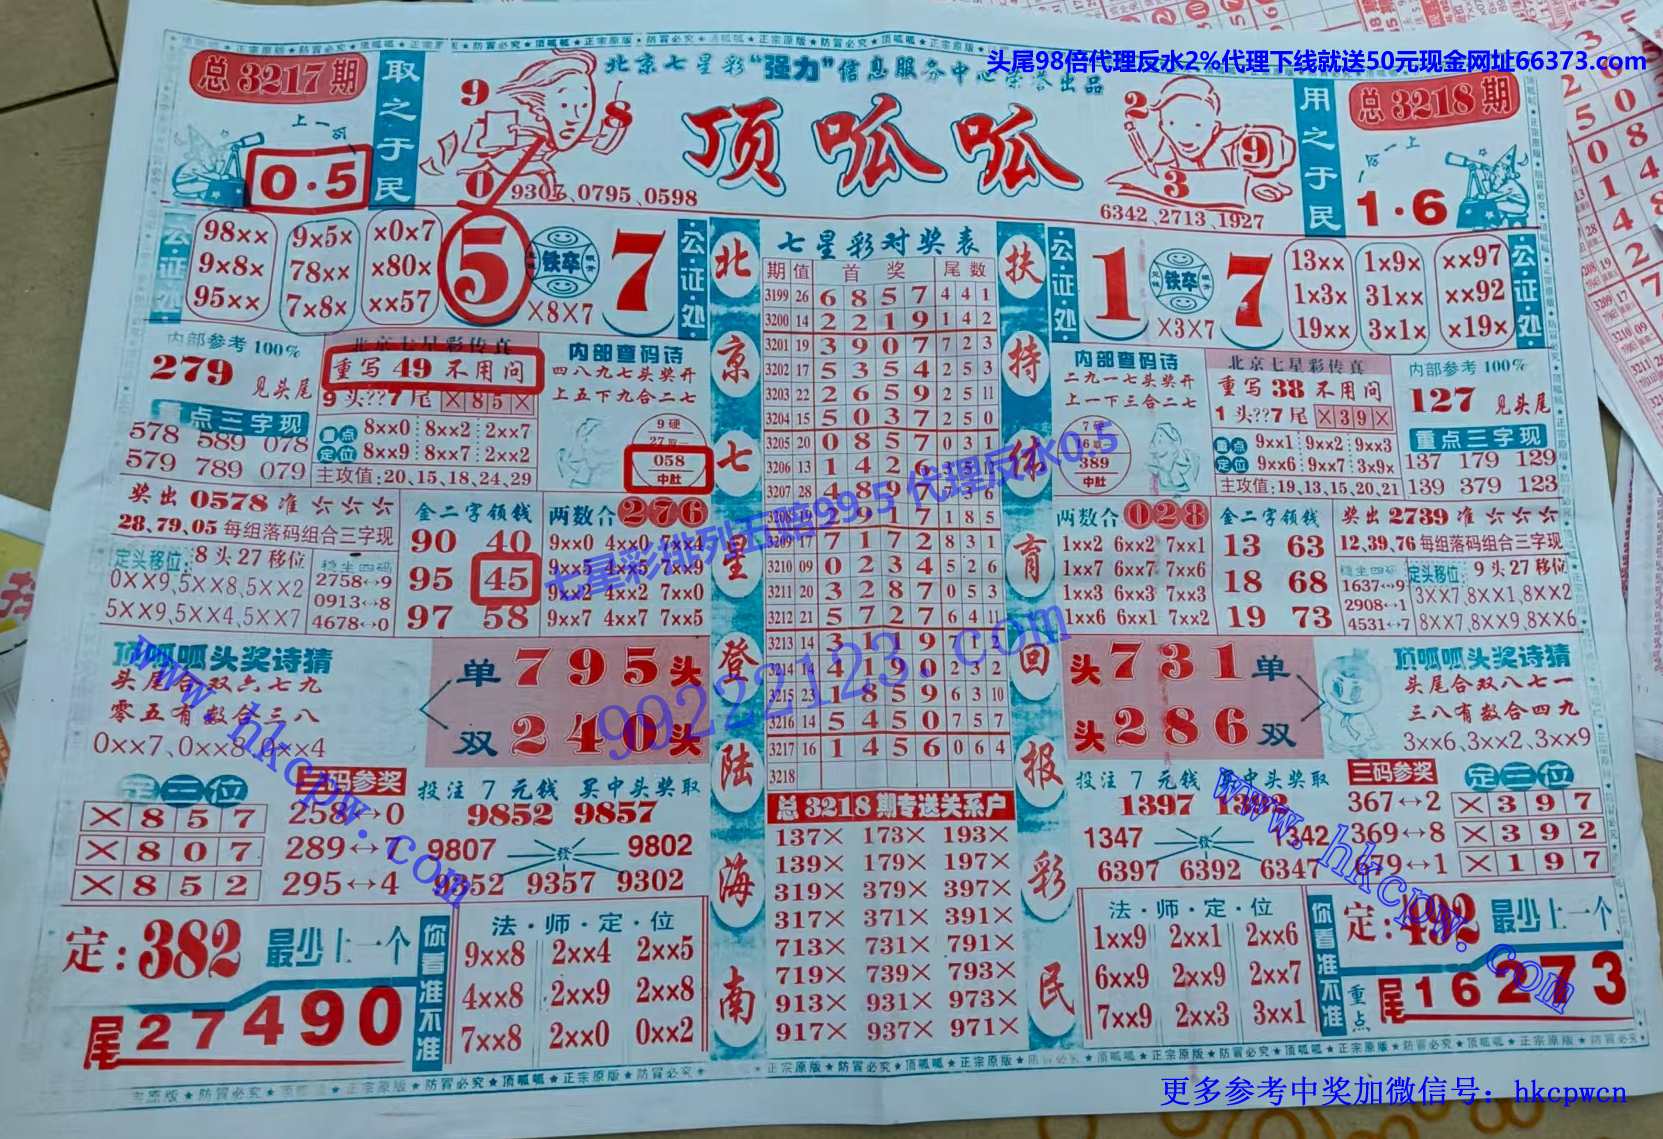 头尾98倍代理反水2%代理下线就送50元现金网址66373.com
北京七星彩“强力”信息服务中心荣誉出品
顶呱呱
总3217期
取之于民
上一码
0·5
9
8
0
9307、0795、0598
用之于民
总3218期
1·6
2
9
3
6342、2713、1927
公·证·处
98×× 9×5× ×0×7
9×8× 78×× ×80×
95×× 7×8× ××57
5 铁卒 7
×8×7
公·证·处
内部参考100%
279 见头尾
重点三字现
578 589 078
579 789 079
北京七星彩传真
重写49不用问
9头??7尾 ×85×
重点定位
8××0 8××2 2××7
8××9 8××7 2××2
主攻值:20,15,18,24,29
内部查码诗
四八九七头奖开
上五下九合二七
9硬
058
中肚
奖出0578准
28,79,05每组落码组合三字现
定头移位: 8头27移位
0××9,5××8,5××2
5××9,5××4,5××7
稳坐四码
2758↔9
0913↔8
4678↔0
金二字领钱
90 40
95 45
97 58
两数合276
9××0 4××0 7××4
9××5 4××5 7××9
9××2 4××2 7××0
9××7 4××7 7××5
顶呱呱头奖诗猜
头尾合双六七九
零五有数合三八
0××7、0××8、0××4
单795头
双240头
定三位
×857
×807
×852
三码参奖
258↔0
289↔7
295↔4
投注7元钱 买中头奖取
9852 9857
9807 发 9802
9352 9357 9302
定:382 最少上一个
尾27490
你看准不准
法·师·定·位
9××8 2××4 2××5
4××8 2××9 2××8
7××8 2××0 0××2
北京七星登陆海南
七星彩对奖表
期 值 首奖 尾数
3199 26 6 8 5 7 4 4 1
3200 14 2 2 1 9 1 4 2
3201 19 3 9 0 7 7 2 3
3202 17 5 3 5 4 2 5 3
3203 22 2 6 5 9 2 5 11
3204 15 5 0 3 7 2 5 0
3205 20 0 8 5 7 0 3 1
3206 13 1 4 2 6
3207 28 4 8 9 7
3208 19 2 9 1 7 1 8 5
3209 17 7 1 7 2 8 3 1
3210 09 0 2 3 4 5 2 6
3211 20 3 2 8 7 0 5 3
3212 21 5 7 2 7 6 4 11
3213 14 3 1 1 9
3214 14 4 1 9 0 2 3 2
3215 23 1 8 5 9 6 3 10
3216 14 5 4 5 0 7 5 7
3217 16 1 4 5 6 0 6 4
3218
总3218期专送关系户
137× 173× 193×
139× 179× 197×
319× 379× 397×
317× 371× 391×
713× 731× 791×
719× 739× 793×
913× 931× 973×
917× 937× 971×
扶持体育回报彩民
公·证·处
1 铁卒 7
×3×7
13×× 1×9× ××97
1×3× 31×× ××92
19×× 3×1× ×19×
公·证·处
内部查码诗
二九一七头奖开
上一下三合二七
7硬
389
中肚
北京七星彩传真
重写38不用问
1头??7尾 ×39×
重点定位
9××1 9××2 9××3
9××6 9××7 3×9×
主攻值:19,13,15,20,21
内部参考100%
127 见头尾
重点三字现
137 179 129
139 379 123
两数合028
1××2 6××2 7××1
1××7 6××7 7××6
1××3 6××3 7××3
1××6 6××1 7××2
金二字领钱
13 63
18 68
19 73
奖出2739准
12,39,76每组落码组合三字现
稳坐四码
1637↔9
2908↔1
4531↔7
定头移位: 9头27移位
3××7,8××1,8××2
8××7,8××9,8××6
头731单
头286双
顶呱呱头奖诗猜
头尾合双八七一
三八有数合四九
3××6、3××2、3××9
投注7元钱 买中头奖取
1397 1392
1347 发 1342
6397 6392 6347
三码参奖
367↔2
369↔8
679↔1
定三位
×397
×392
×197
法·师·定·位
1××9 2××1 2××6
6××9 2××9 2××7
7××9 2××3 3××1
你看准不准
定:492 最少上一个
重点
尾16273
七星彩排列五赔99.5 代理反水0.5
99222123.com
www.hkcpw.com
www.hkcpw.com
更多参考中奖加微信号：hkcpwcn